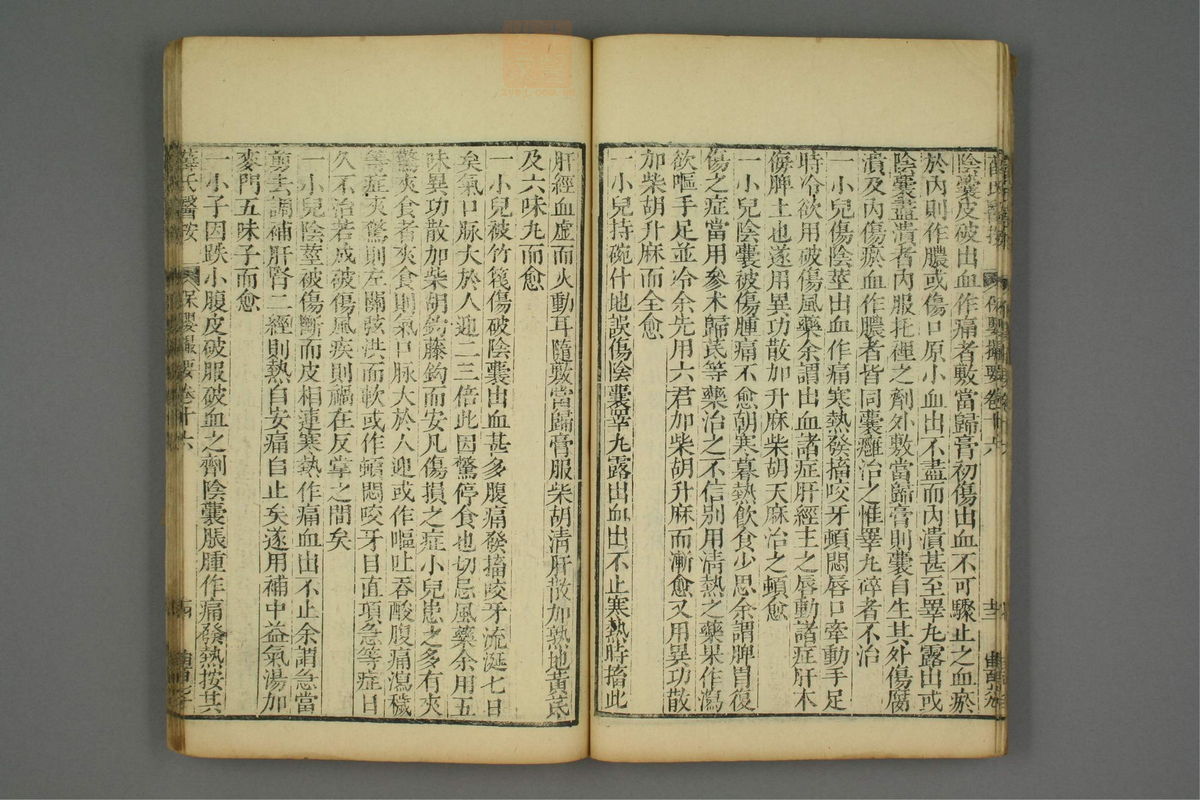 陰囊皮破出血作痛者敷當歸膏初傷出血不可驟止之血瘀
於內則作膿或傷口原小血出不盡而內潰甚至睪丸露出或
陰囊盡潰者內服托裡之劑外敷當歸膏則囊自生其外傷腐
潰及內傷瘀血作膿者皆同囊癰治之惟睪丸碎者不治
一小兒傷陰莖出血作痛寒熱發搐咬牙頓悶唇口牽動手足
時冷欲用破傷風藥余謂出血諸症肝經主之唇動諸症肝木
侮脾土也遂用異功散加升麻柴胡天麻治之頓愈
一小兒陰囊被傷腫痛不愈朝寒暮熱飲食少思余謂脾胃復
傷之症當用參术歸芪等藥治之不信別用清熱之藥果作瀉
欲嘔手足並冷余先用六君加柴胡升麻而漸愈又用異功散
加柴胡升麻而全愈
一小兒持碗仆地誤傷陰囊睪丸露出血出不止寒熱時搐此
肝經血虛而火動耳隨敷當歸膏服柴胡清肝散加熟地黃芪
及六味丸而愈
一小兒被竹篾傷破陰囊出血甚多腹痛發搐咬牙流涎七日
矣氣口脉大於人迎二三倍此因驚停食也切忌風藥余用五
味異功散加柴胡鈎藤鈎而安凡傷損之症小兒患之多有夾
驚夾食者夾食則氣口脉大於人迎或作嘔吐吞酸腹痛瀉穢
等症夾驚則左關弦洪而軟或作頓悶咬牙目直項急等症日
久不治若成破傷風疾則禍在反掌之間矣
一小兒陰莖被傷斷而皮相連寒熱作痛血出不止余謂急當
剪去調補肝腎二經則熱自安痛自止矣遂用補中益氣湯加
麥門五味子而愈
一小子因跌小腹皮破服破血之劑陰囊脹腫作痛發熱按其
薛氏醫按 保嬰撮要卷十六